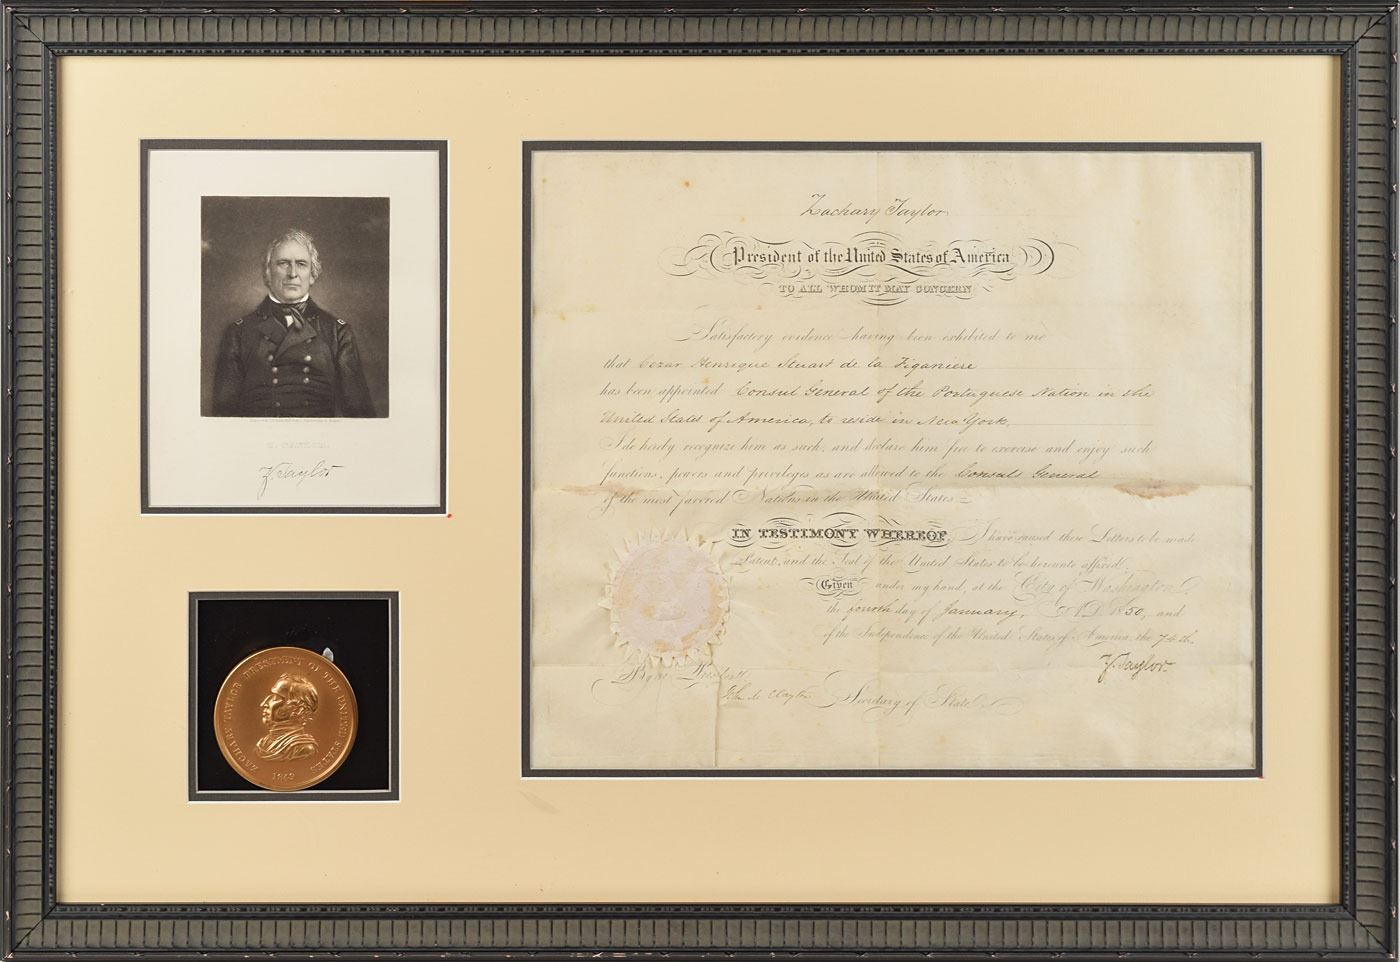 Z. Taylor
ZACHARY TAYLOR PRESIDENT OF THE UNITED STATES
1849
Zachary Taylor
President of the United States of America
TO ALL WHOM IT MAY CONCERN
Satisfactory evidence having been exhibited to me
that Cezar Henrique Stuart de la Figaniere
has been appointed Consul General of the Portuguese Nation in the
United States of America, to reside in New York,
I do hereby recognize him as such, and declare him free to exercise and enjoy such
functions, powers and privileges as are allowed to the Consuls General
of the most favored Nations in the United States.
IN TESTIMONY WHEREOF, I have caused these Letters to be made
Patent, and the Seal of the United States to be hereunto affixed.
Given under my hand, at the City of Washington
the fourth day of January, A.D. 1850, and
of the Independence of the United States of America, the 74th.
Z. Taylor
By the President
John M. Clayton Secretary of State.